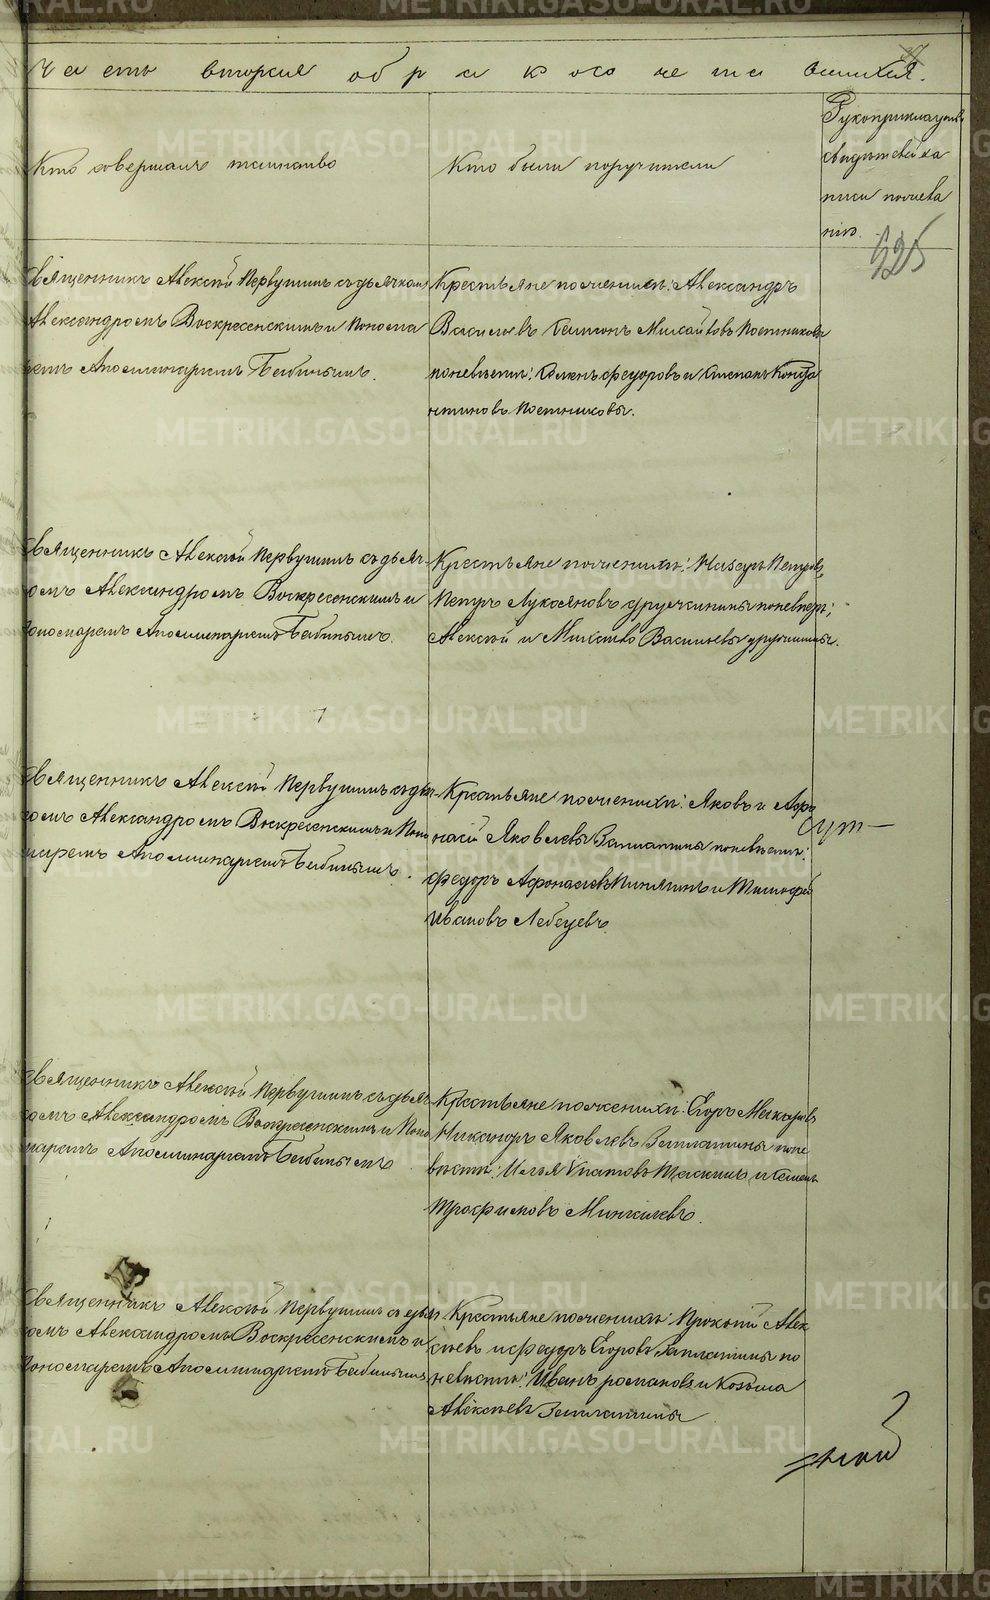 Часть вторая о бракосочетавшихся.
Кто совершалъ таинство
Кто были поручители
Рукоприкладство
свидетелей за
писи по желa
нию.
625
Священникъ Алексѣй Первушинъ съ дьячкомъ
Александромъ Воскресенскимъ и Понома
ремъ Аполлинаріемъ Бабинымъ.
Крестьяне по женихѣ: Александръ
Васильевъ Семенъ Михайловъ Постниковы
по невѣстѣ: Семенъ Федоровъ и Степанъ Конста
нтиновъ Постниковы.
Священникъ Алексѣй Первушинъ съ дьяч
комъ Александромъ Воскресенскимъ и
Пономаремъ Аполлинаріемъ Бабинымъ.
Крестьяне по женихѣ: Назаръ Петровъ,
Петръ Лукояновъ по невѣстѣ;
Алексѣй и Васильевы
Священникъ Алексѣй Первушинъ съ дьяч
комъ Александромъ Воскресенскимъ и Поно
маремъ Аполлинаріемъ Бабинымъ.
Крестьяне по женихѣ: Яковъ и Афо
насій Яковлевы Заплатины по невѣстѣ:
Федоръ Афонасьевъ и Тимофей
Ивановъ Лебедевъ.
Священникъ Алексѣй Первушинъ съ дьяч
комъ Александромъ Воскресенскимъ и Поно
маремъ Аполлинаріемъ Бабинымъ
Крестьяне по женихѣ: Егоръ Макаровъ
Никаноръ Яковлевъ Заплатины по не
вѣстѣ: Илья Ипатовъ Таскинъ и Семенъ
Трофимовъ
Священникъ Алексѣй Первушинъ съ дьяч
комъ Александромъ Воскресенскимъ и
Пономаремъ Аполлинаріемъ Бабинымъ
Крестьяне по женихѣ: Прокопій Алек
сѣевъ и Федоръ Егоровъ Заплатины по
невѣстѣ: Иванъ Романовъ и Козьма
Алексѣевъ Заплатины
METRIKI.GASO-URAL.RU